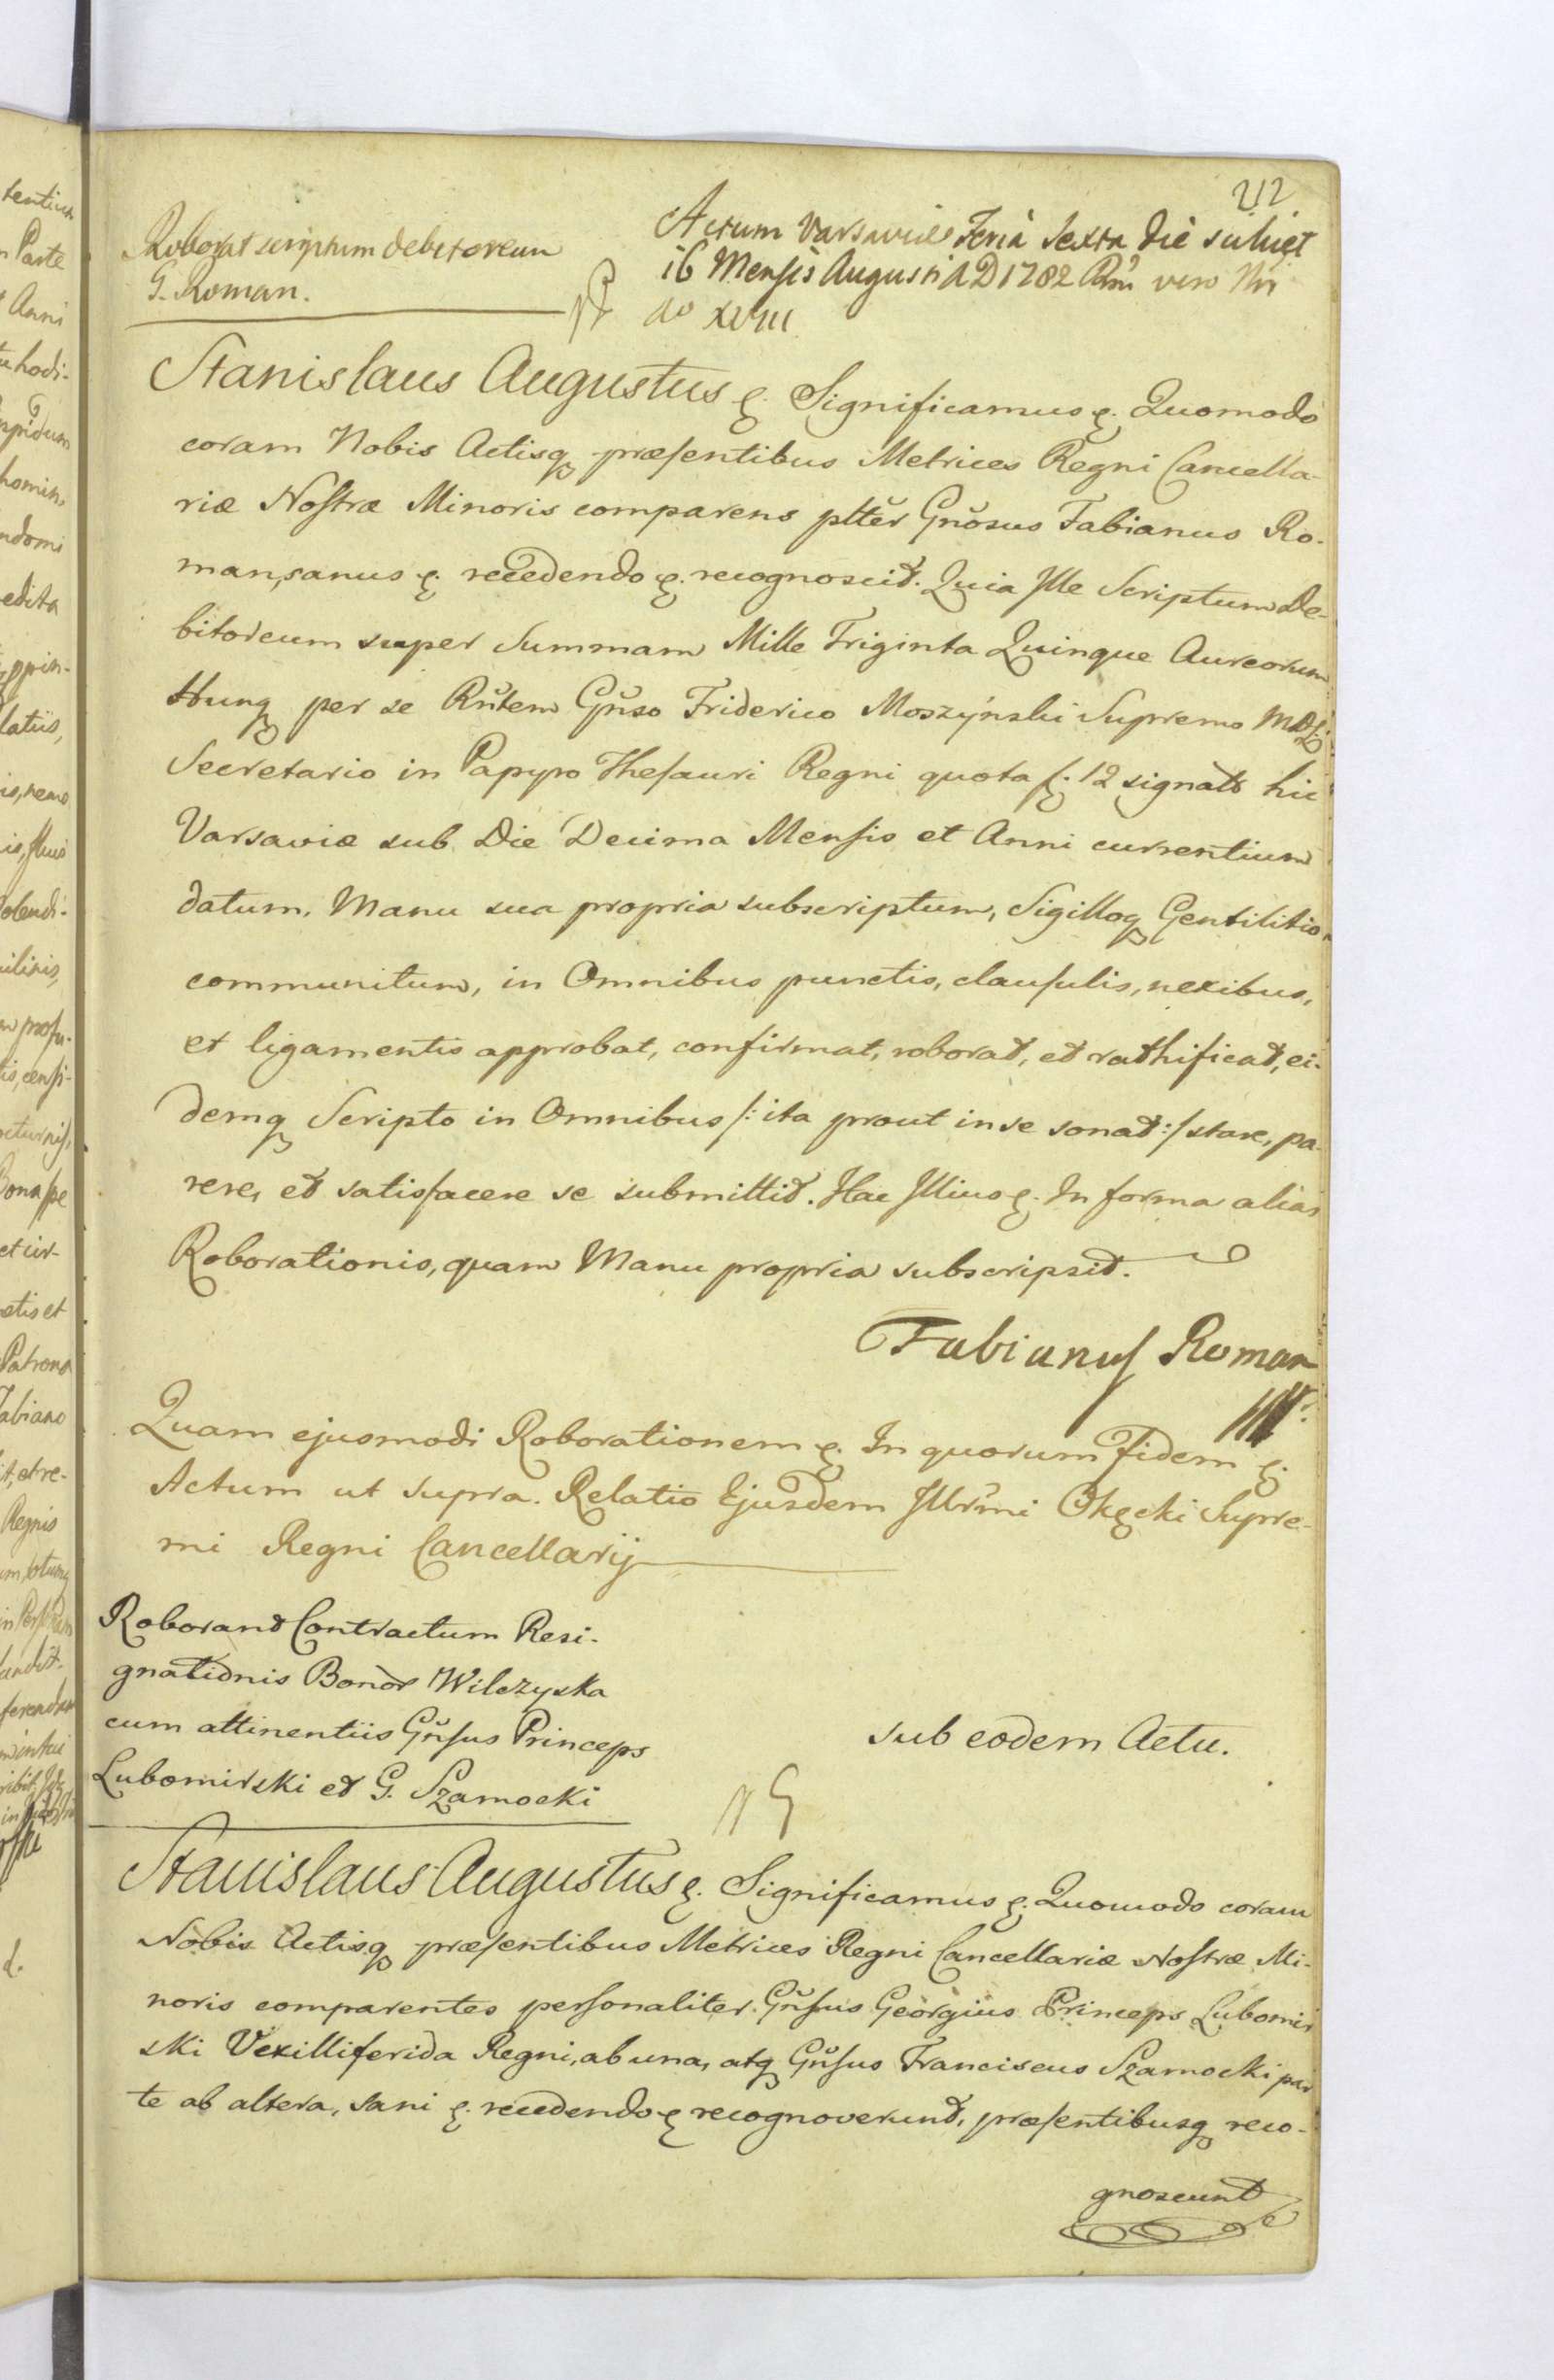 212
Roborat scriptum debitoreum
G. Roman.
Actum Varsaviæ Feria Sexta die scilicet
16 Mensis Augusti AD 1782 Rni vero Nri
ao XVIII
Stanislaus Augustus &. Significamus &. Quomodo
coram Nobis Actisq præsentibus Metrices Regni Cancella-
riæ Nostræ Minoris comparens plter Gnosus Fabianus Ro-
man, sanus &. recedendo &. recognoscit. Quia Ille Scriptum De-
bitoreum super Summam Mille Triginta Quinque Aureorum
Hung per se Rntem Gnso Friderico Moszyński Supremo MDL
Secretario in Papyro Thesauri Regni quota f. 12 signato hic
Varsaviæ sub Die Decima Mensis et Anni currentium
datum, Manu sua propria subscriptum, Sigilloq Gentilitio
communitum, in Omnibus punctis, clausulis, nexibus,
et ligamentis approbat, confirmat, roborat, et rathificat, ei-
demq Scripto in Omnibus /: ita prout in se sonat :/ stare, pa-
rere, et satisfacere se submittit. Hac Illius &. In forma alias
Roborationis, quam Manu propria subscripsit.
Fabianus Roman
Quam ejusmodi Roborationem &. In quorum Fidem &.
Actum ut supra. Relatio Ejusdem Illrmi Okęcki Supre-
mi Regni Cancellarij
Roborand Contractum Resi-
gnationis Bonor Wilczyska
cum attinentiis Gnsus Princeps
Lubomirski et G. Szamocki
sub eodem Actu.
Stanislaus Augustus &. Significamus &. Quomodo coram
Nobis Actisq præsentibus Metrices Regni Cancellariæ Nostræ Mi-
noris comparentes personaliter Gnsus Georgius Princeps Lubomir
ski Vexilliferida Regni, ab una, atq Gnsus Franciscus Szamocki par
te ab altera, sani &. recedendo & recognoverunt, præsentibusq reco-
gnoscunt